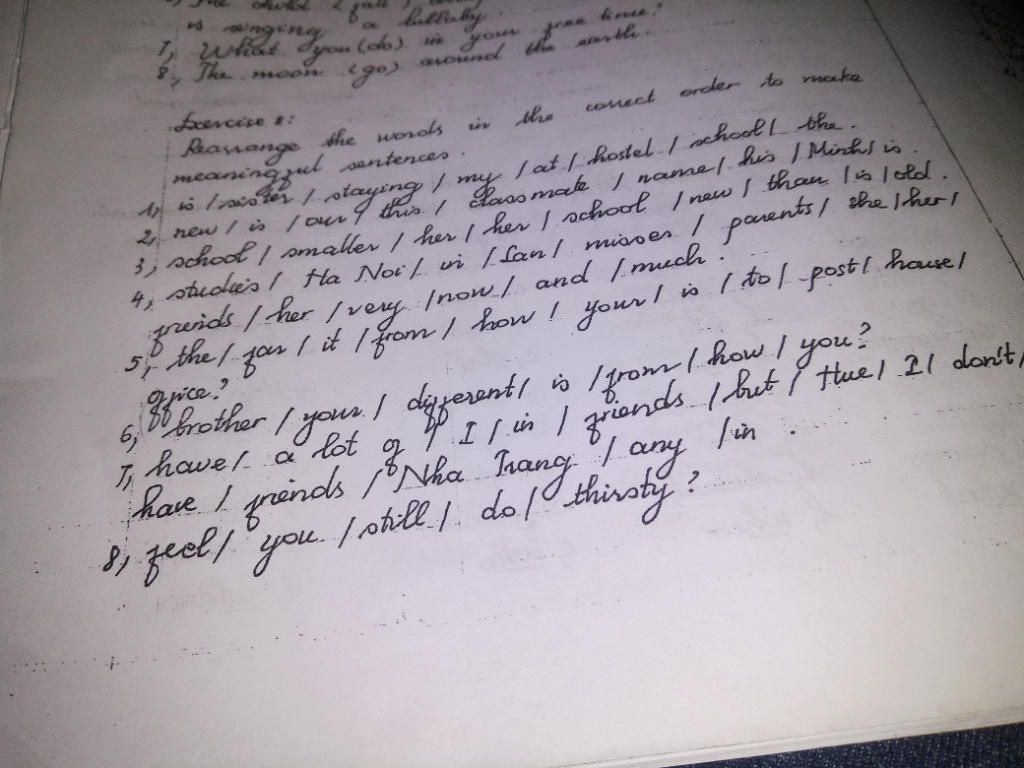 is singing a lullaby.
7, What you (do) in your free time?
8, The moon (go) around the earth.
Exercise 2:
Rearrange the words in the correct order to make
meaningful sentences.
1, is / sister / staying / my / at / hostel / school / the.
2, new / is / our / this / classmate / name / his / Minh / is.
3, school / smaller / her / her / school / new / than / is / old.
4, studies / Ha Noi / in / Lan / misses / parents / she / her /
friends / her / very / now / and / much.
5, the / far / it / from / how / your / is / to / post / house /
office?
6, brother / your / different / is / from / how / you?
7, have / a lot of / I / in / friends / but / Hue / I / don't /
have / friends / Nha Trang / any / in .
8, feel / you / still / do / thirsty?